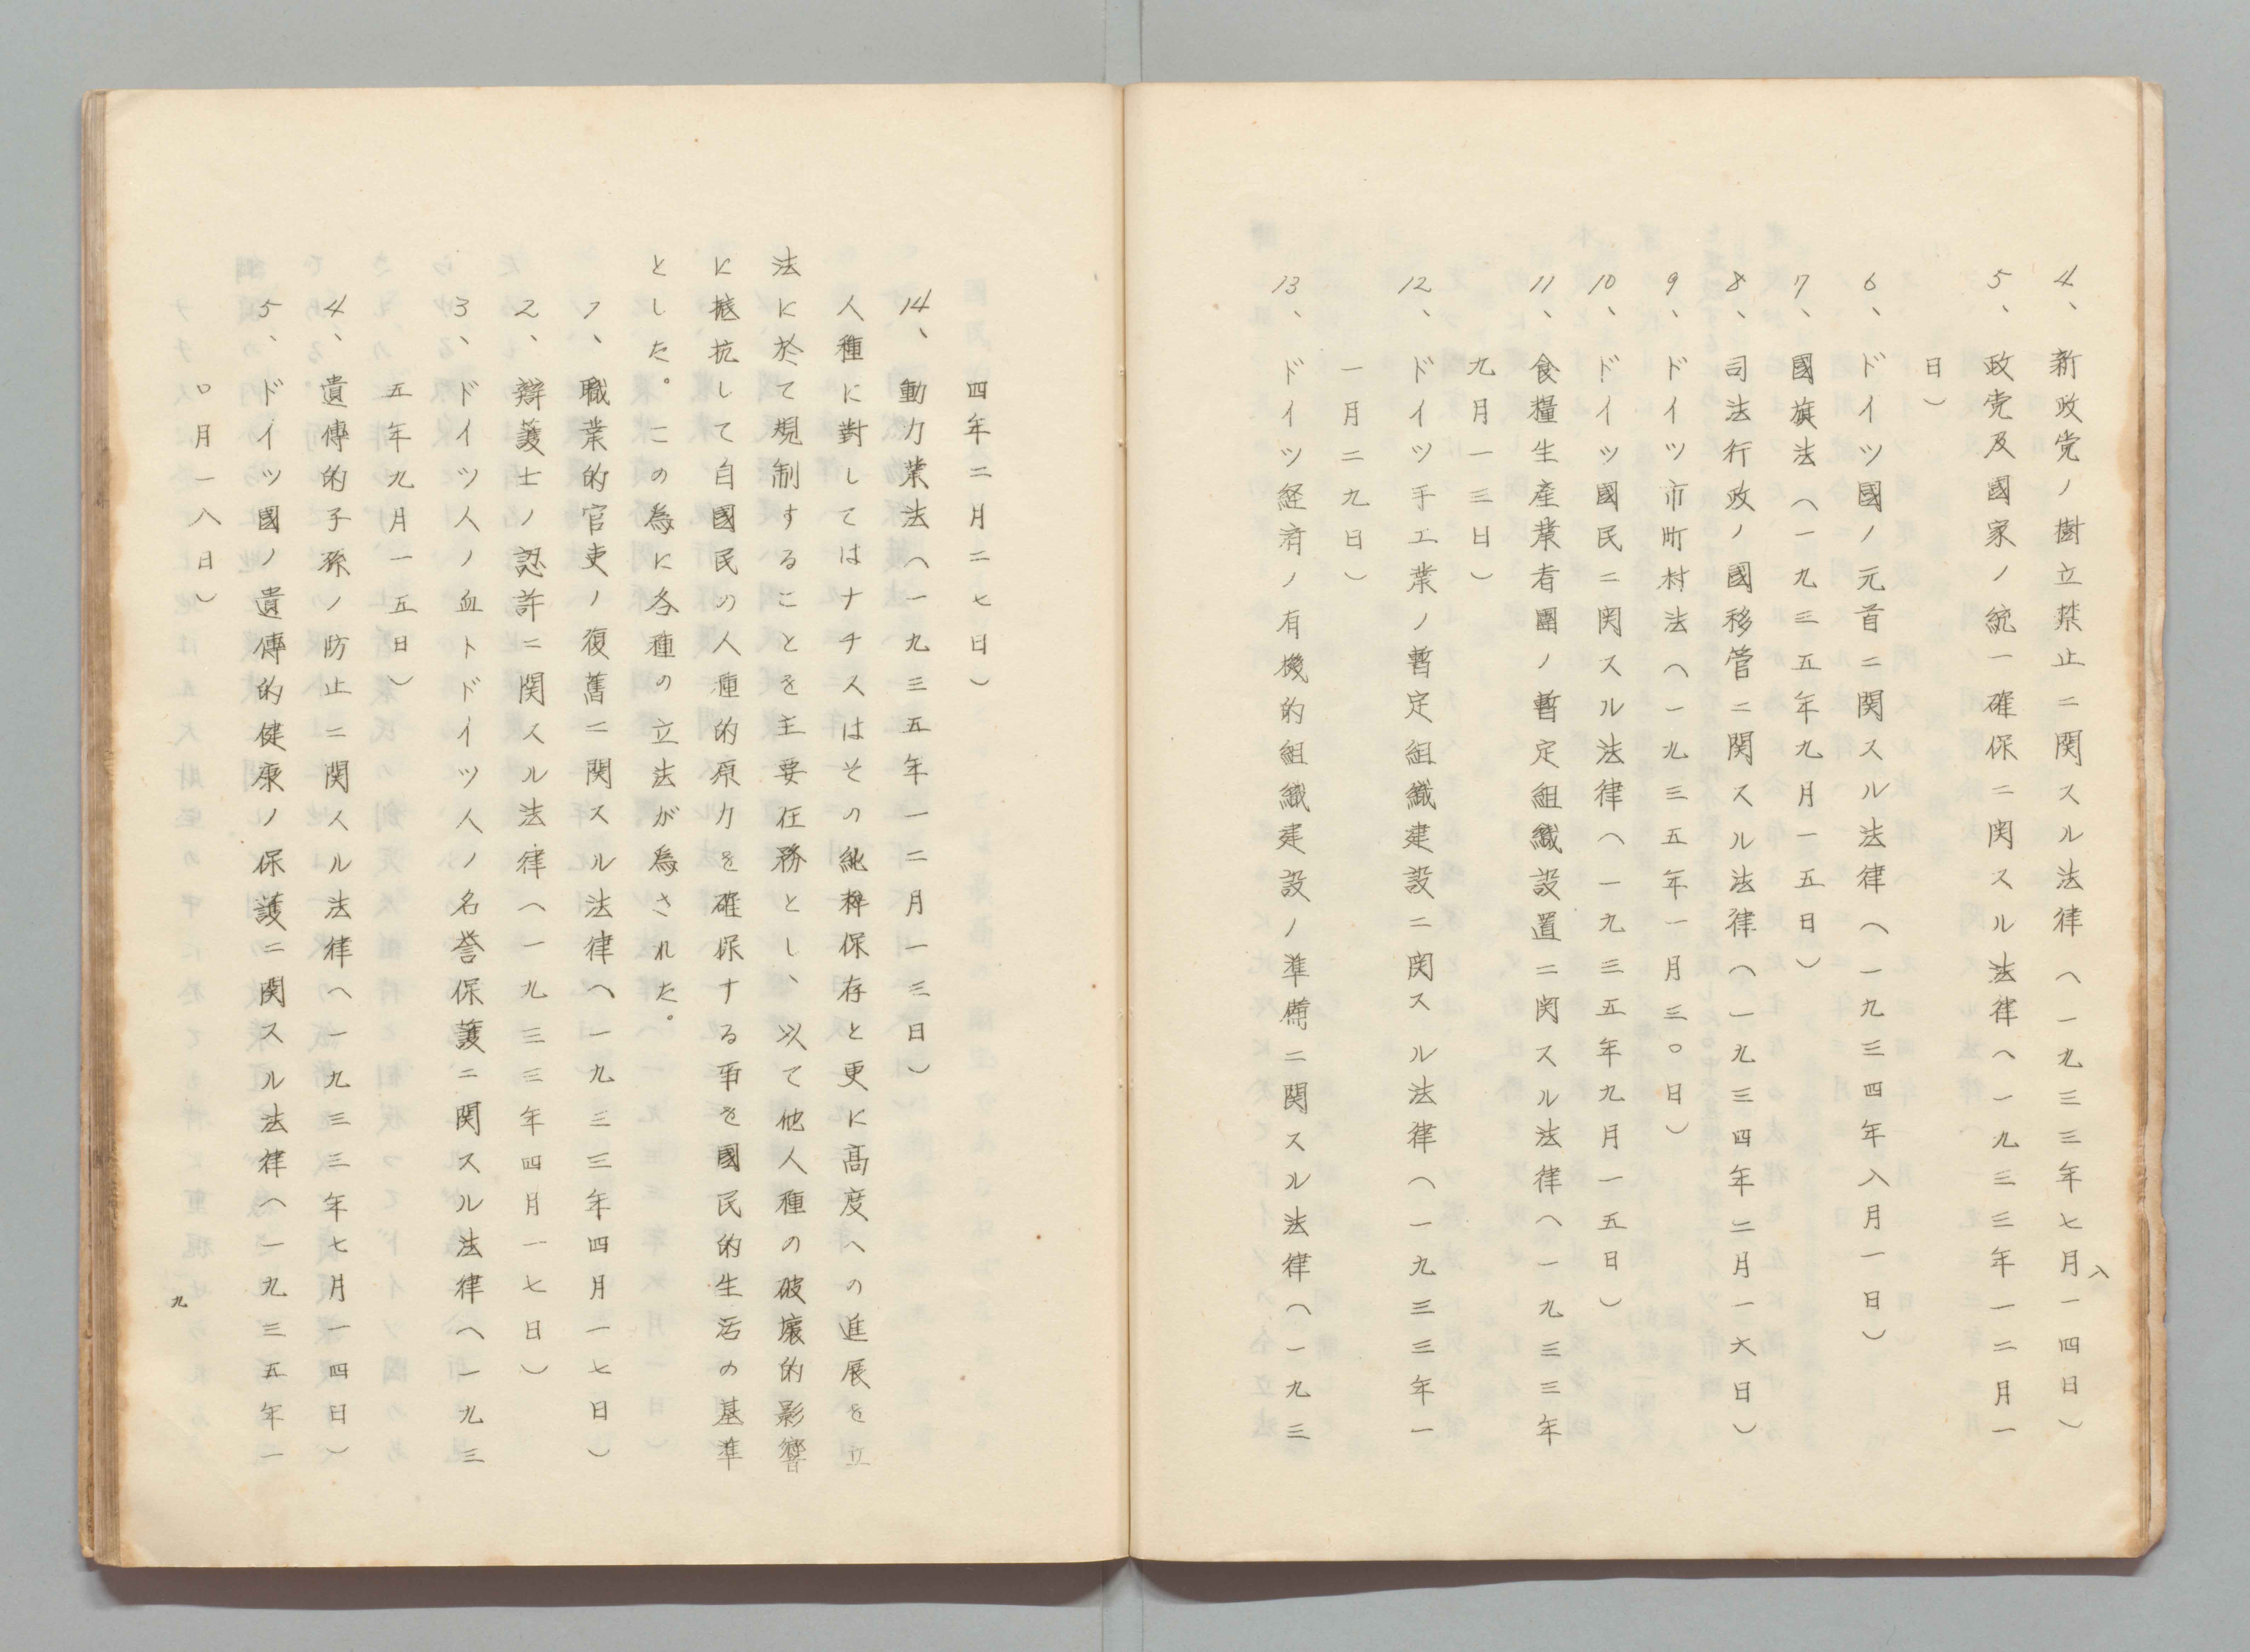 4、新政党ノ樹立禁止ニ関スル法律（一九三三年七月一四日）
5、政党及國家ノ統一確保ニ関スル法律（一九三三年一二月一
日）
6、ドイツ國ノ元首ニ関スル法律（一九三四年八月一日）
7、國旗法（一九三五年九月一五日）
8、司法行政ノ國移管ニ関スル法律（一九三四年二月一六日）
9、ドイツ市町村法（一九三五年一月三〇日）
10、ドイツ國民ニ関スル法律（一九三五年九月一五日）
11、食糧生產業者團ノ暫定組織設置ニ関スル法律（一九三三年
九月一三日）
12、ドイツ手工業ノ暫定組織建設ニ関スル法律（一九三三年一
一月二九日）
13、ドイツ経済ノ有機的組織建設ノ準備ニ関スル法律（一九三
八
四年二月二七日）
14、動力業法（一九三五年一二月一三日）
人種に對してはナチスはその純粋保存と更に高度への進展を立
法に於て規制することを主要任務とし、以て他人種の破壞的影響
に抵抗して自國民の人種的原力を確保する事を國民的生活の基準
とした。この為に各種の立法が為された。
1、職業的官吏ノ復舊ニ関スル法律（一九三三年四月一七日）
2、辯護士ノ認許ニ関スル法律（一九三三年四月一七日）
3、ドイツ人ノ血トドイツ人ノ名誉保護ニ関スル法律（一九三
五年九月一五日）
4、遺傳的子孫ノ防止ニ関スル法律（一九三三年七月一四日）
5、ドイツ國ノ遺傳的健康ノ保護ニ関スル法律（一九三五年一
〇月一八日）
九